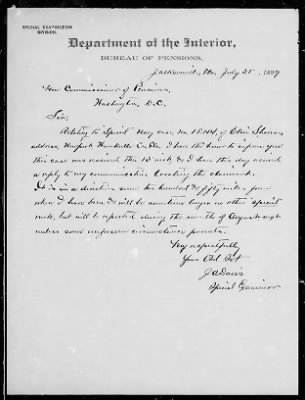 SPECIAL EXAMINATION
DIVISION.
Department of the Interior,
BUREAU OF PENSIONS,
Jacksonville, Fla., July 28", 1897
Hon Commissioner of Pensions
Washington, D.C.
Sir;
Relating to Special Navy case, No. of
address Co. Fla. I have the honor to inform you
this case was received this 13" inst & I have this day received
a reply to my communication locating the claimant.
It is in a direction some two hundred & fifty miles from
where I have been & will be sometime longer on other special
work, but will be reported during the month of August
unless some unforeseen circumstance prevents.
Very respectfully
Your Obt. Svt
J A Davis
Special Examiner